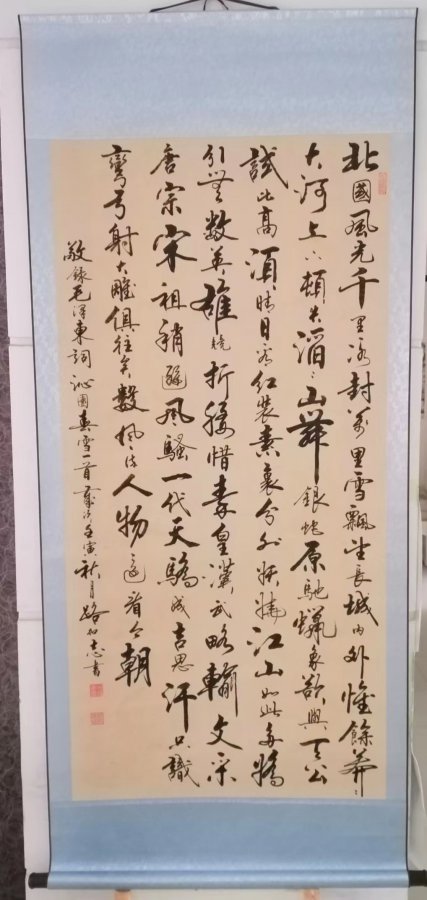 北國風光千里冰封萬里雪飄望長城內外惟餘莽々
大河上下頓失滔々山舞銀蛇原馳蠟象欲與天公
試比高須晴日看紅裝素裹分外妖嬈江山如此多嬌
引無數英雄競折腰惜秦皇漢武略輸文采
唐宗宋祖稍遜風騷一代天驕成吉思汗只識
彎弓射大雕俱往矣數風流人物還看今朝
敬錄毛澤東詞沁園春雪一首歲次壬寅秋月路志書